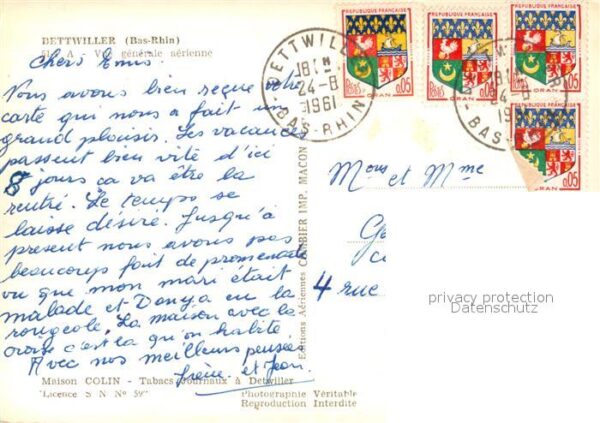 DETTWILLER (Bas-Rhin)
A - Vue générale aérienne
Chers Amis.
Vous avons bien reçue votre
carte qui nous a fait un
grand plaisir. Les vacances
passent bien vite d'ici
8 jours ca va être la
rentré. Le temps se
laisse désiré. Jusqu'à
present nous avons pas
beaucoups fait de promenade
vu que mon mari était
malade et Danya eu la
rougeole. La maison avec la
croix c'est la qu'on habite
Avec nos meilleurs pensées
Irène et Jean.
Maison COLIN - Tabacs-Journaux à Dettwiller
"Licence S N N° 59"
Photographie Véritable
Reproduction Interdite
Editions Aériennes COMBIER IMP. MACON
DETTWILLER
18H
24-8
1961
BAS-RHIN
REPUBLIQUE FRANÇAISE
Postes
0,05
ORAN
REPUBLIQUE FRANÇAISE
Postes
ORAN
REPUBLIQUE FRANÇAISE
0,05
ORAN
0,05
ORAN
18H
24
19
BAS
Mons et Mme
Ge
4 rue
privacy protection
Datenschutz